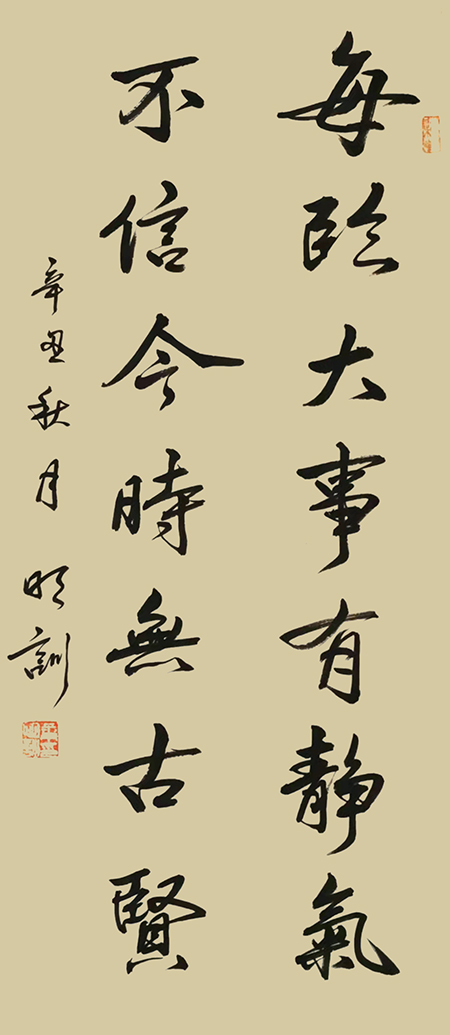 每臨大事有静氣
不信今時無古賢
辛丑秋月 明訓